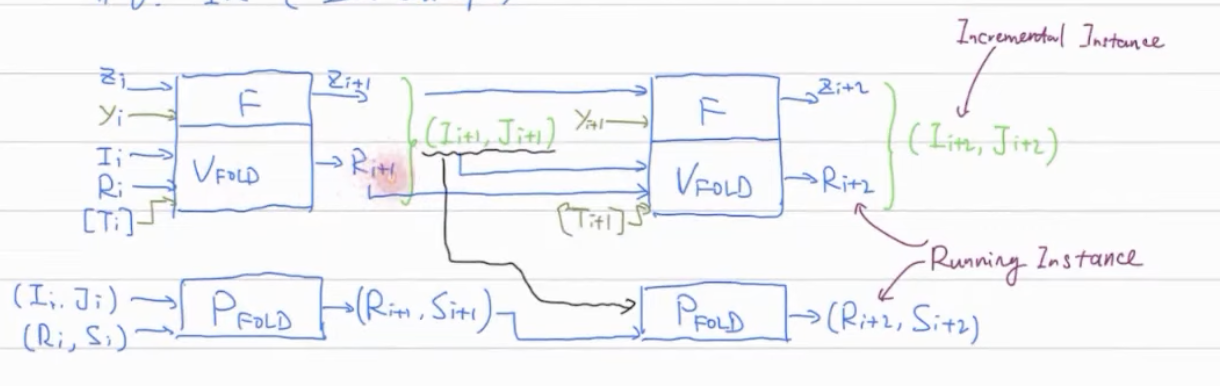 Incremental Instance
Zi
F
Zi+1
yi
Ii
Ri
[Ti]
VFOLD
Ri+1
(Ii+1, Ji+1)
yi+1
[Ti+1]
F
VFOLD
Zi+2
Ri+2
(Ii+2, Ji+2)
Running Instance
(Ii, Ji)
(Ri, Si)
PFOLD
(Ri+1, Si+1)
PFOLD
(Ri+2, Si+2)